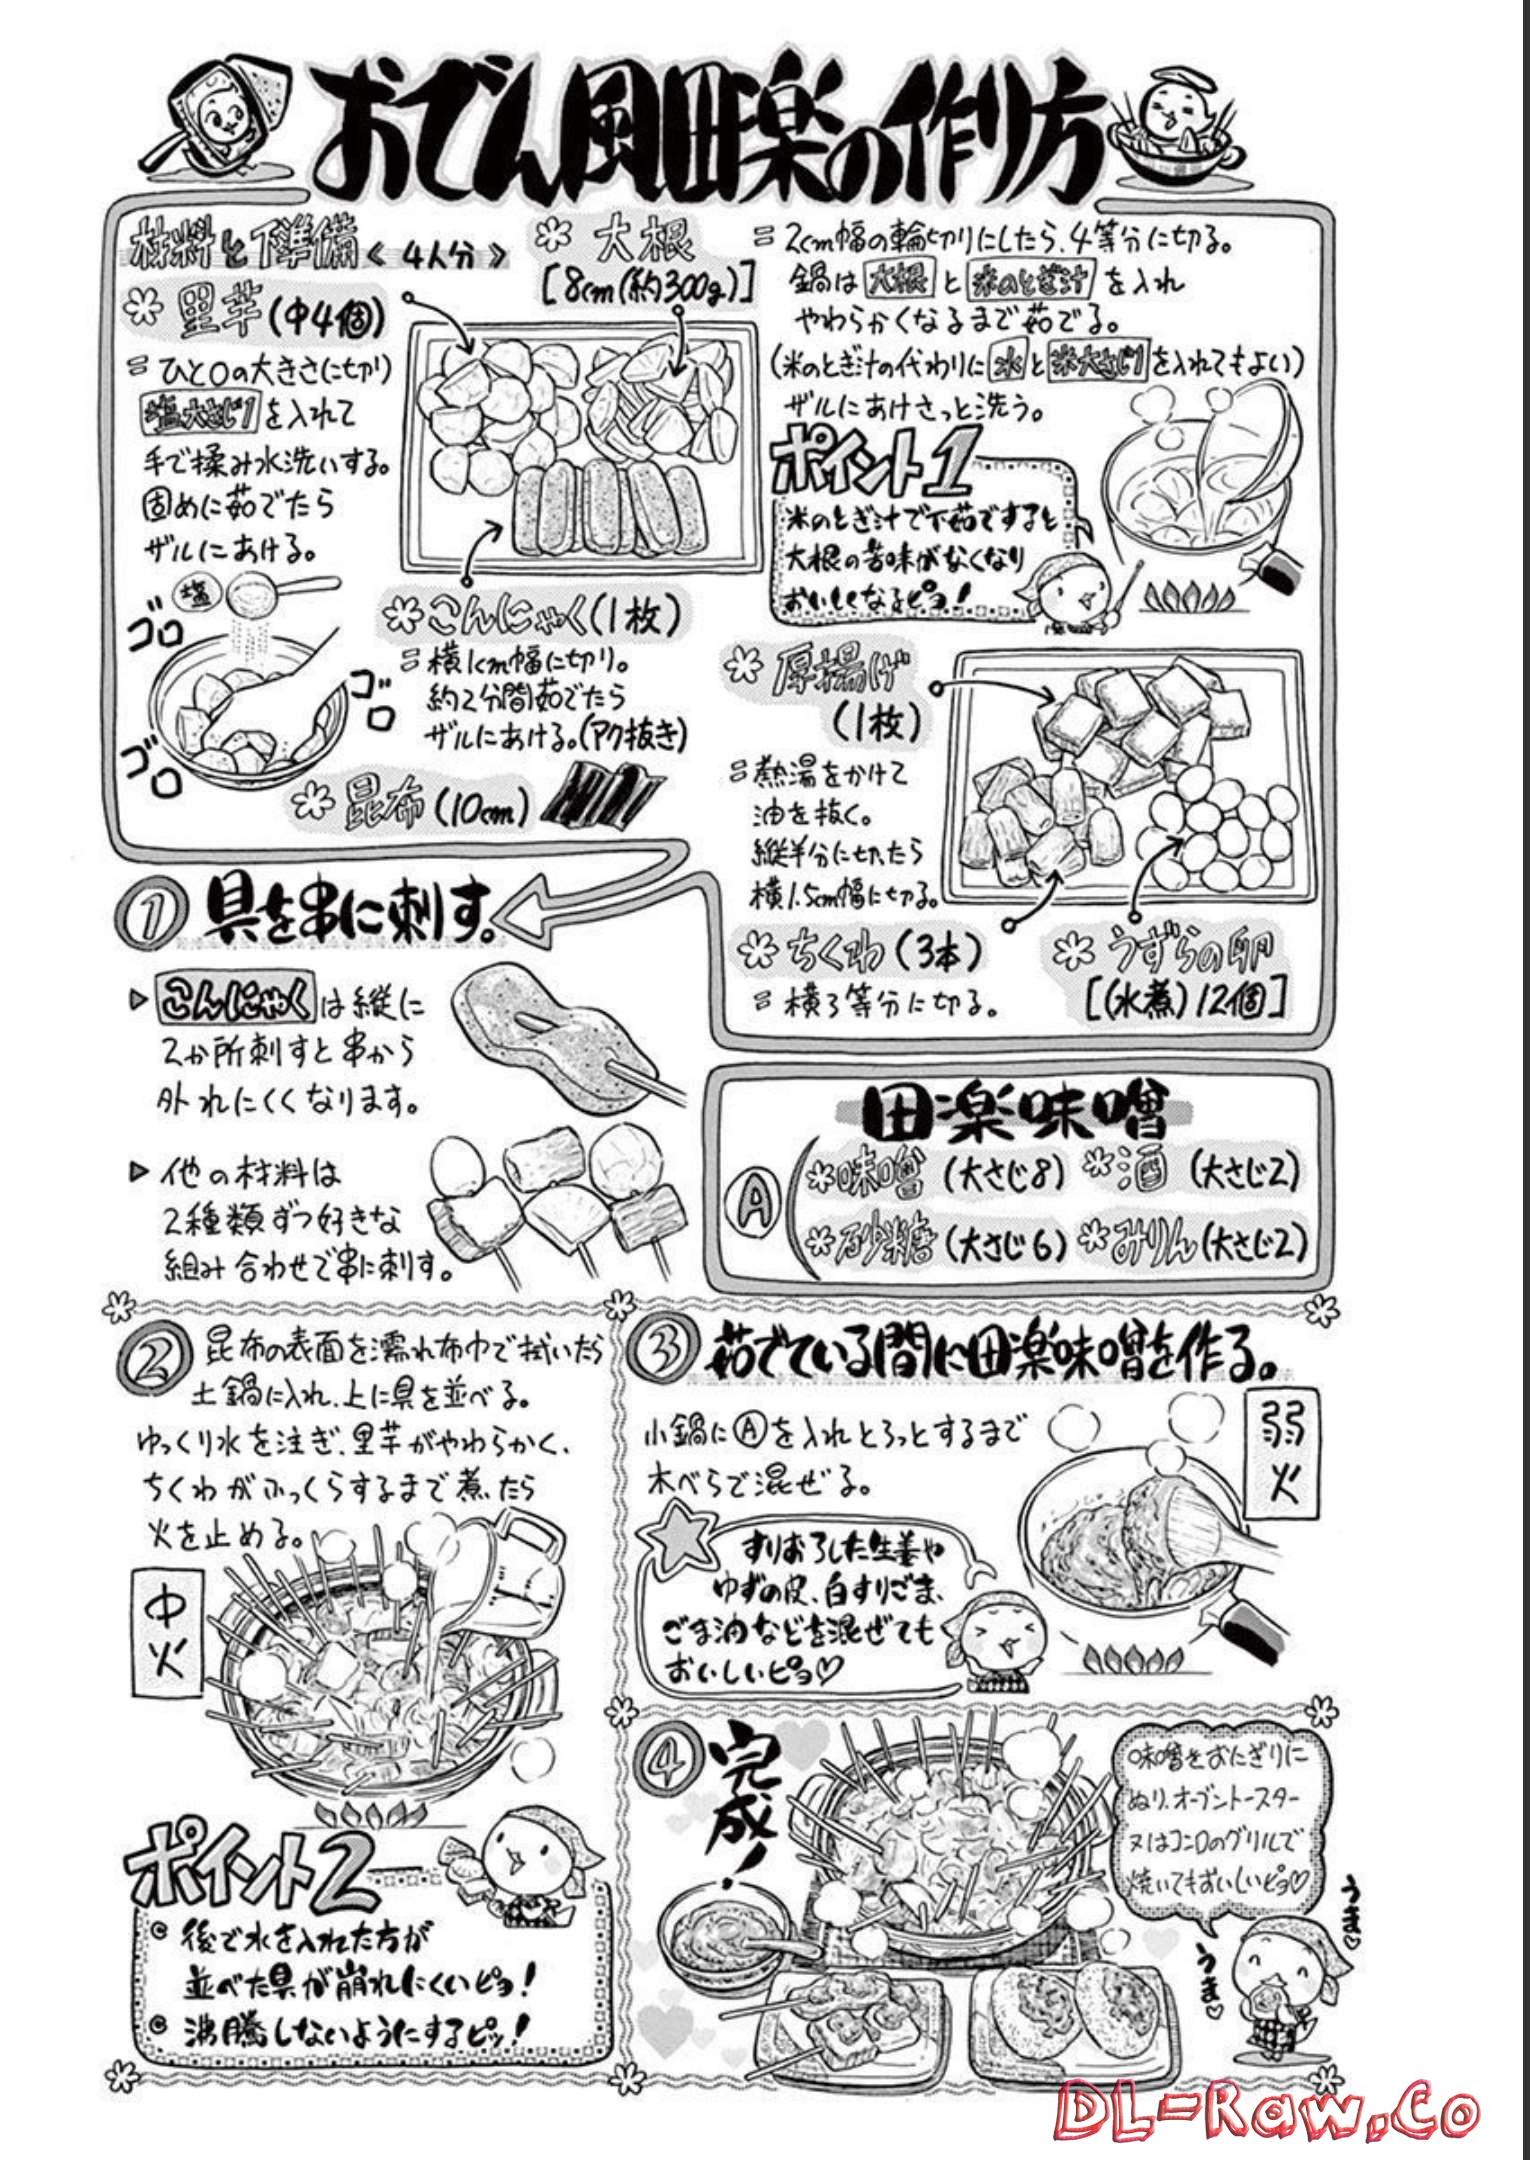 おでん風田楽の作り方
材料と下準備《4人分》
＊里芋(中4個)
=ひと口の大きさに切り
塩大さじ1を入れて
手で揉み水洗いする。
固めに茹でたら
ザルにあける。
塩
ゴロ
ゴロ
ゴロ
＊大根
[8cm(約300g)]
=2cm幅の輪切りにしたら、4等分に切る。
鍋は大根と米のとぎ汁を入れ
やわらかくなるまで茹でる。
(米のとぎ汁の代わりに水と米大さじ1を入れてもよい)
ザルにあけさっと洗う。
ポイント1
米のとぎ汁で下茹ですると
大根の苦味がなくなり
おいしくなるピョ!
＊こんにゃく(1枚)
=横1cm幅に切り。
約2分間茹でたら
ザルにあける。(アク抜き)
＊昆布(10cm)
＊厚揚げ
(1枚)
=熱湯をかけて
油を抜く。
縦半分に切ったら
横1.5cm幅に切る。
＊ちくわ(3本)
=横3等分に切る。
＊うずらの卵
[(水煮)12個]
①具を串に刺す。
▷こんにゃくは縦に
2か所刺すと串から
外れにくくなります。
▷他の材料は
2種類ずつ好きな
組み合わせで串に刺す。
田楽味噌
Ⓐ
＊味噌(大さじ8) ＊酒(大さじ2)
＊砂糖(大さじ6) ＊みりん(大さじ2)
②昆布の表面を濡れ布巾で拭いたら
土鍋に入れ、上に具を並べる。
ゆっくり水を注ぎ、里芋がやわらかく、
ちくわがふっくらするまで煮たら
火を止める。
中火
ポイント2
◎後で水を入れた方が
並べた具が崩れにくいピョ!
◎沸騰しないようにするピッ!
③茹でている間に田楽味噌を作る。
小鍋にⒶを入れとろっとするまで
木べらで混ぜる。
弱火
すりおろした生姜や
ゆずの皮、白すりごま、
ごま油などを混ぜても
おいしいピョ♡
④完成!
味噌をおにぎりに
ぬり、オーブントースター
又はコンロのグリルで
焼いてもおいしいピョ♡
うま♡
うま♡
DL-Raw.Co